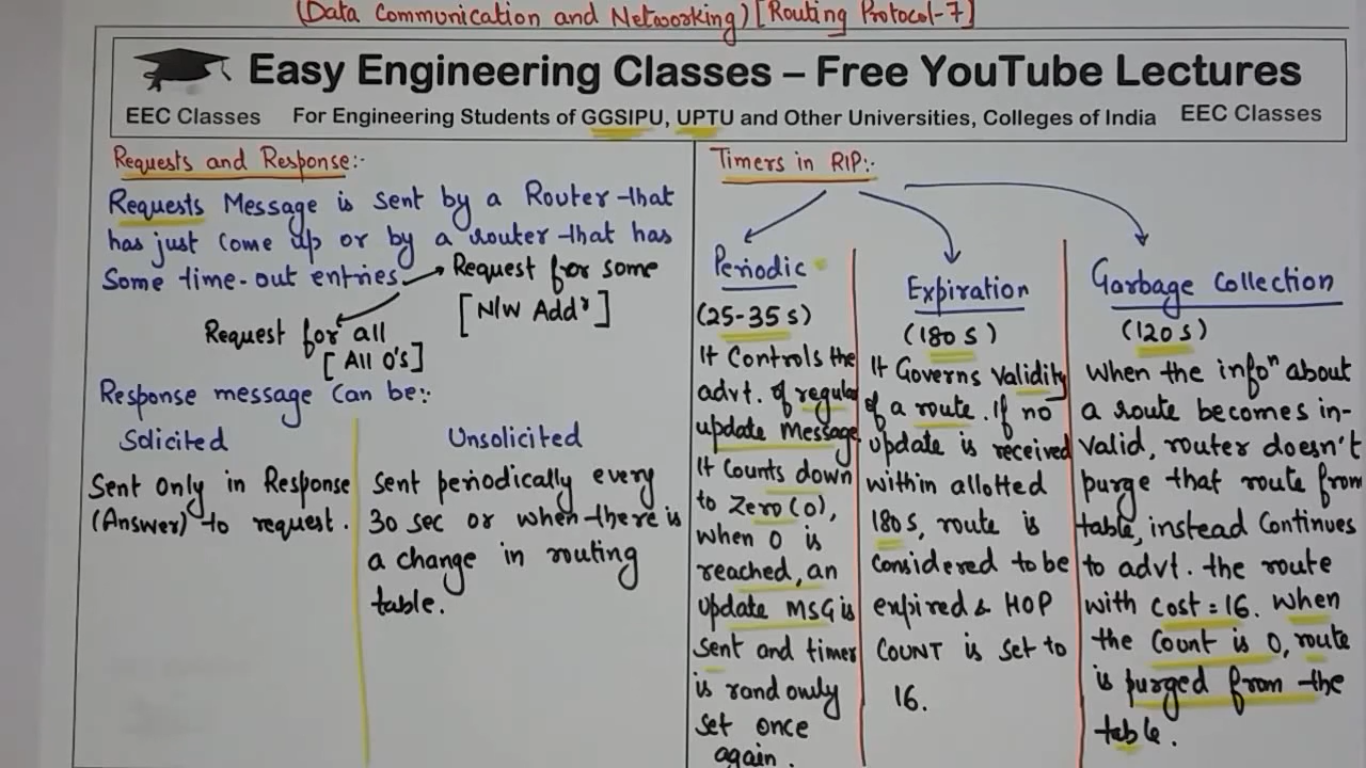 (Data Communication and Networking) [Routing Protocol-7]
Easy Engineering Classes – Free YouTube Lectures
EEC Classes For Engineering Students of GGSIPU, UPTU and Other Universities, Colleges of India EEC Classes
Requests and Response:-
Requests Message is sent by a Router that
has just come up or by a router that has
Some time-out entries
Request for some
[N/W Addr]
Request for all
[All 0's]
Response message can be:-
Solicited
Sent only in Response
(Answer) to request.
Unsolicited
Sent periodically every
30 sec or when there is
a change in routing
table.
Timers in RIP:-
Periodic
(25-35 s)
It controls the
advt. of regular
update Message.
It Counts down
to Zero (0),
when 0 is
reached, an
update MSG is
sent and timer
is randomly
set once
again.
Expiration
(180 s)
It Governs validity
of a route. If no
update is received
within allotted
180 s, route is
considered to be
expired & HOP
COUNT is set to
16.
Garbage Collection
(120 s)
When the infon about
a route becomes in-
valid, router doesn't
purge that route from
table, instead continues
to advt. the route
with cost = 16. When
the count is 0, route
is purged from the
table.